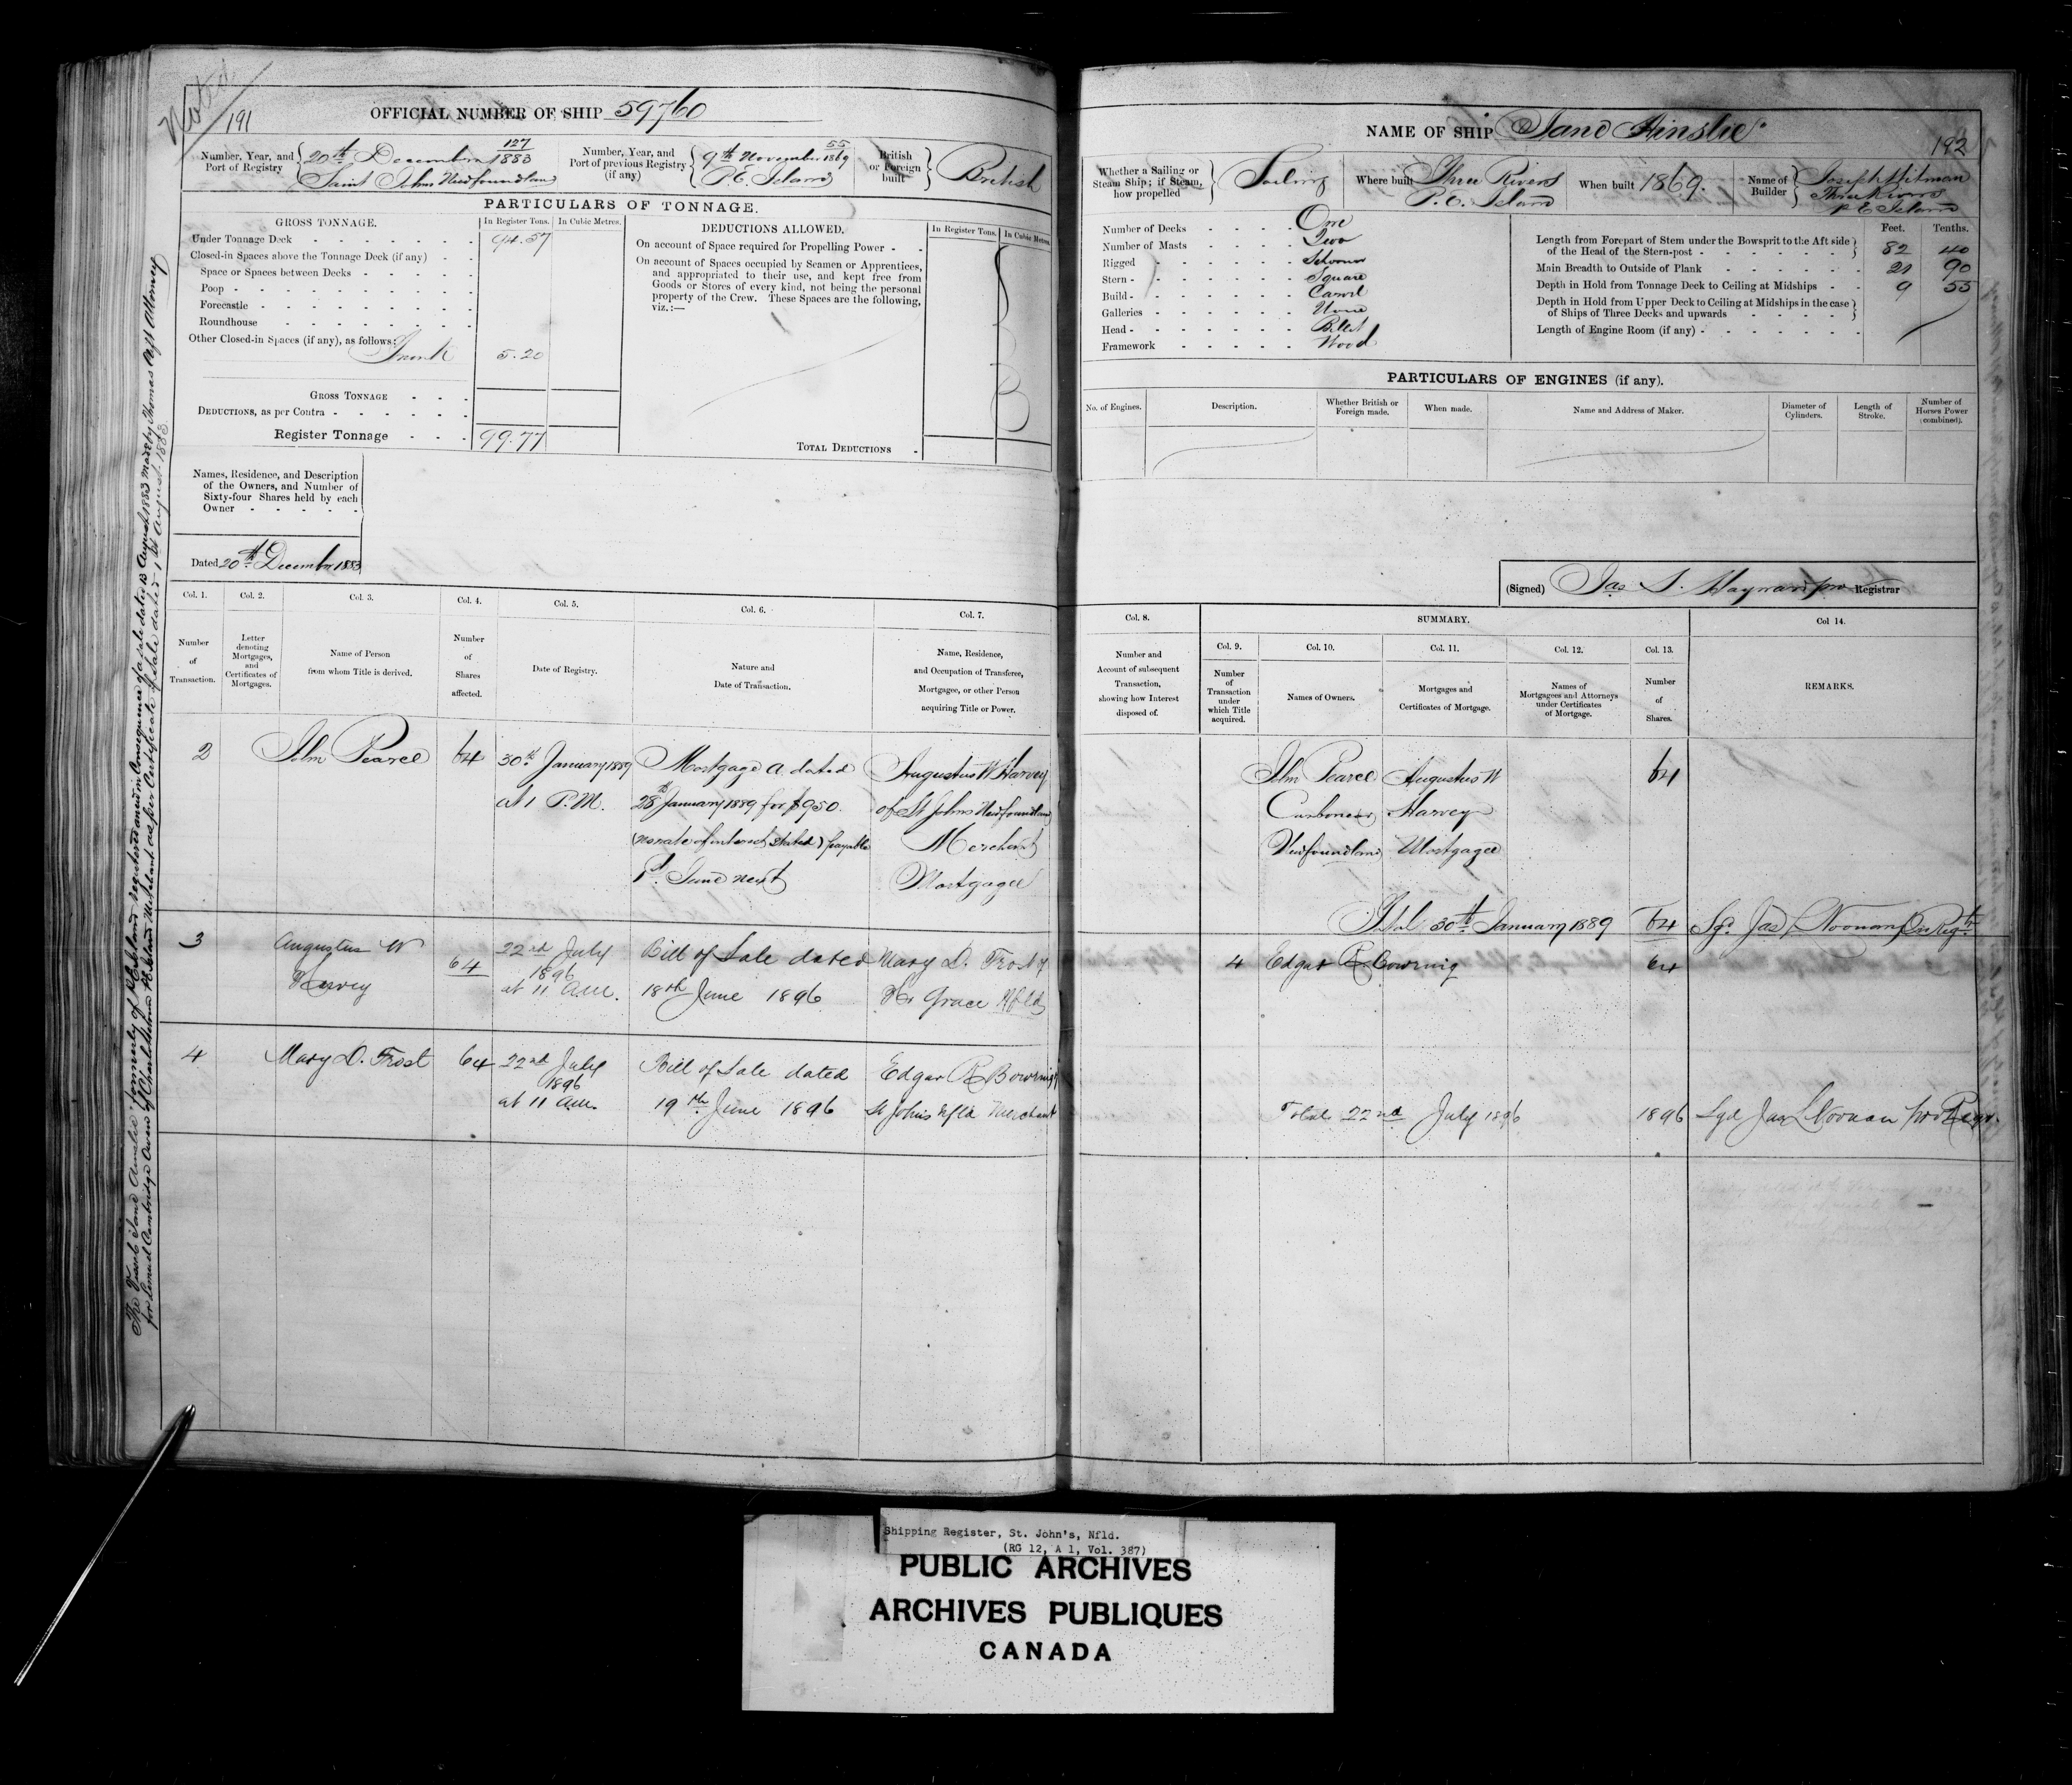 Noted
191
OFFICIAL NUMBER OF SHIP 59760
Number, Year, and Port of Registry
127
20th December 1883
Saint Johns Newfoundland
Number, Year, and Port of previous Registry (if any)
55
9th November 1869
P.E. Island
British or Foreign built
British
PARTICULARS OF TONNAGE.
GROSS TONNAGE.
In Register Tons.
In Cubic Metres.
Under Tonnage Deck 94.57
Closed-in Spaces above the Tonnage Deck (if any)
Space or Spaces between Decks
Poop
Forecastle
Roundhouse
Other Closed-in Spaces (if any), as follows:
Trunk 5.20
GROSS TONNAGE
DEDUCTIONS, as per Contra
Register Tonnage 99.77
DEDUCTIONS ALLOWED.
In Register Tons.
In Cubic Metres.
On account of Space required for Propelling Power
On account of Spaces occupied by Seamen or Apprentices,
and appropriated to their use, and kept free from
Goods or Stores of every kind, not being the personal
property of the Crew. These Spaces are the following,
viz.:—
TOTAL DEDUCTIONS
Names, Residence, and Description
of the Owners, and Number of
Sixty-four Shares held by each
Owner
Dated 20th December 1883
Col. 1.
Number
of
Transaction.
Col. 2.
Letter
denoting
Mortgages,
and
Certificates of
Mortgages.
Col. 3.
Name of Person
from whom Title is derived.
Col. 4.
Number
of
Shares
affected.
Col. 5.
Date of Registry.
Col. 6.
Nature and
Date of Transaction.
Col. 7.
Name, Residence,
and Occupation of Transferee,
Mortgagee, or other Person
acquiring Title or Power.
2
John Pearce
64
30th January 1889
at 1 P.M.
Mortgage A. dated
28th January 1889 for $950.
(no rate of interest stated) payable
1st June next
Augustus W Harvey
of St Johns Newfoundland
Merchant
Mortgagee
3
Augustus W
Harvey
64
22nd July
1896
at 11 a.m.
Bill of Sale dated
18th June 1896
Mary D. Frost of
Hr Grace Nfld
4
Mary D. Frost
64
22nd July
1896
at 11 a.m.
Bill of Sale dated
19th June 1896
Edgar R Bowring
St Johns Nfld Merchant
The Vessel "Jane Ainslie" formerly of P.E. Island registered anew in consequence of a sale dated 13 August 1883 made by Thomas Taft Attorney
for Lemuel Cambridge Owen of Charlottetown P.E. Island Merchant as per Certificate of Sale dated 1st August 1883
NAME OF SHIP Jane Ainslie
192
Whether a Sailing or
Steam Ship; if Steam,
how propelled
Sailing
Where built
Three Rivers
P.E. Island
When built 1869.
Name of Builder
Joseph Hitman
Three Rivers
P E Island
Number of Decks One
Number of Masts Two
Rigged Schooner
Stern Square
Build Carvel
Galleries None
Head Billet
Framework Wood
Feet. Tenths.
Length from Forepart of Stem under the Bowsprit to the Aft side
of the Head of the Stern-post 82 40
Main Breadth to Outside of Plank 21 90
Depth in Hold from Tonnage Deck to Ceiling at Midships 9 55
Depth in Hold from Upper Deck to Ceiling at Midships in the case
of Ships of Three Decks and upwards
Length of Engine Room (if any)
PARTICULARS OF ENGINES (if any).
No. of Engines.
Description.
Whether British or
Foreign made.
When made.
Name and Address of Maker.
Diameter of
Cylinders.
Length of
Stroke.
Number of
Horses Power
(combined).
(Signed) Jas S. Hayward pro Registrar
Col. 8.
Number and
Account of subsequent
Transaction,
showing how Interest
disposed of.
SUMMARY.
Col. 9.
Number
of
Transaction
under
which Title
acquired.
Col. 10.
Names of Owners.
Col. 11.
Mortgages and
Certificates of Mortgage.
Col. 12.
Names of
Mortgagees and Attorneys
under Certificates
of Mortgage.
Col. 13.
Number
of
Shares.
Col 14.
REMARKS.
John Pearce
Carbonear
Newfoundland
Augustus W
Harvey
Mortgagee
64
Total 30th January 1889 64 Sgd Jas L Noonan
4 Edgar R Bowring 64
Total 22nd July 1896 1896 Sgd Jas L Noonan pro Regr.
Shipping Register, St. John's, Nfld.
(RG 12, A 1, Vol. 387)
PUBLIC ARCHIVES
ARCHIVES PUBLIQUES
CANADA